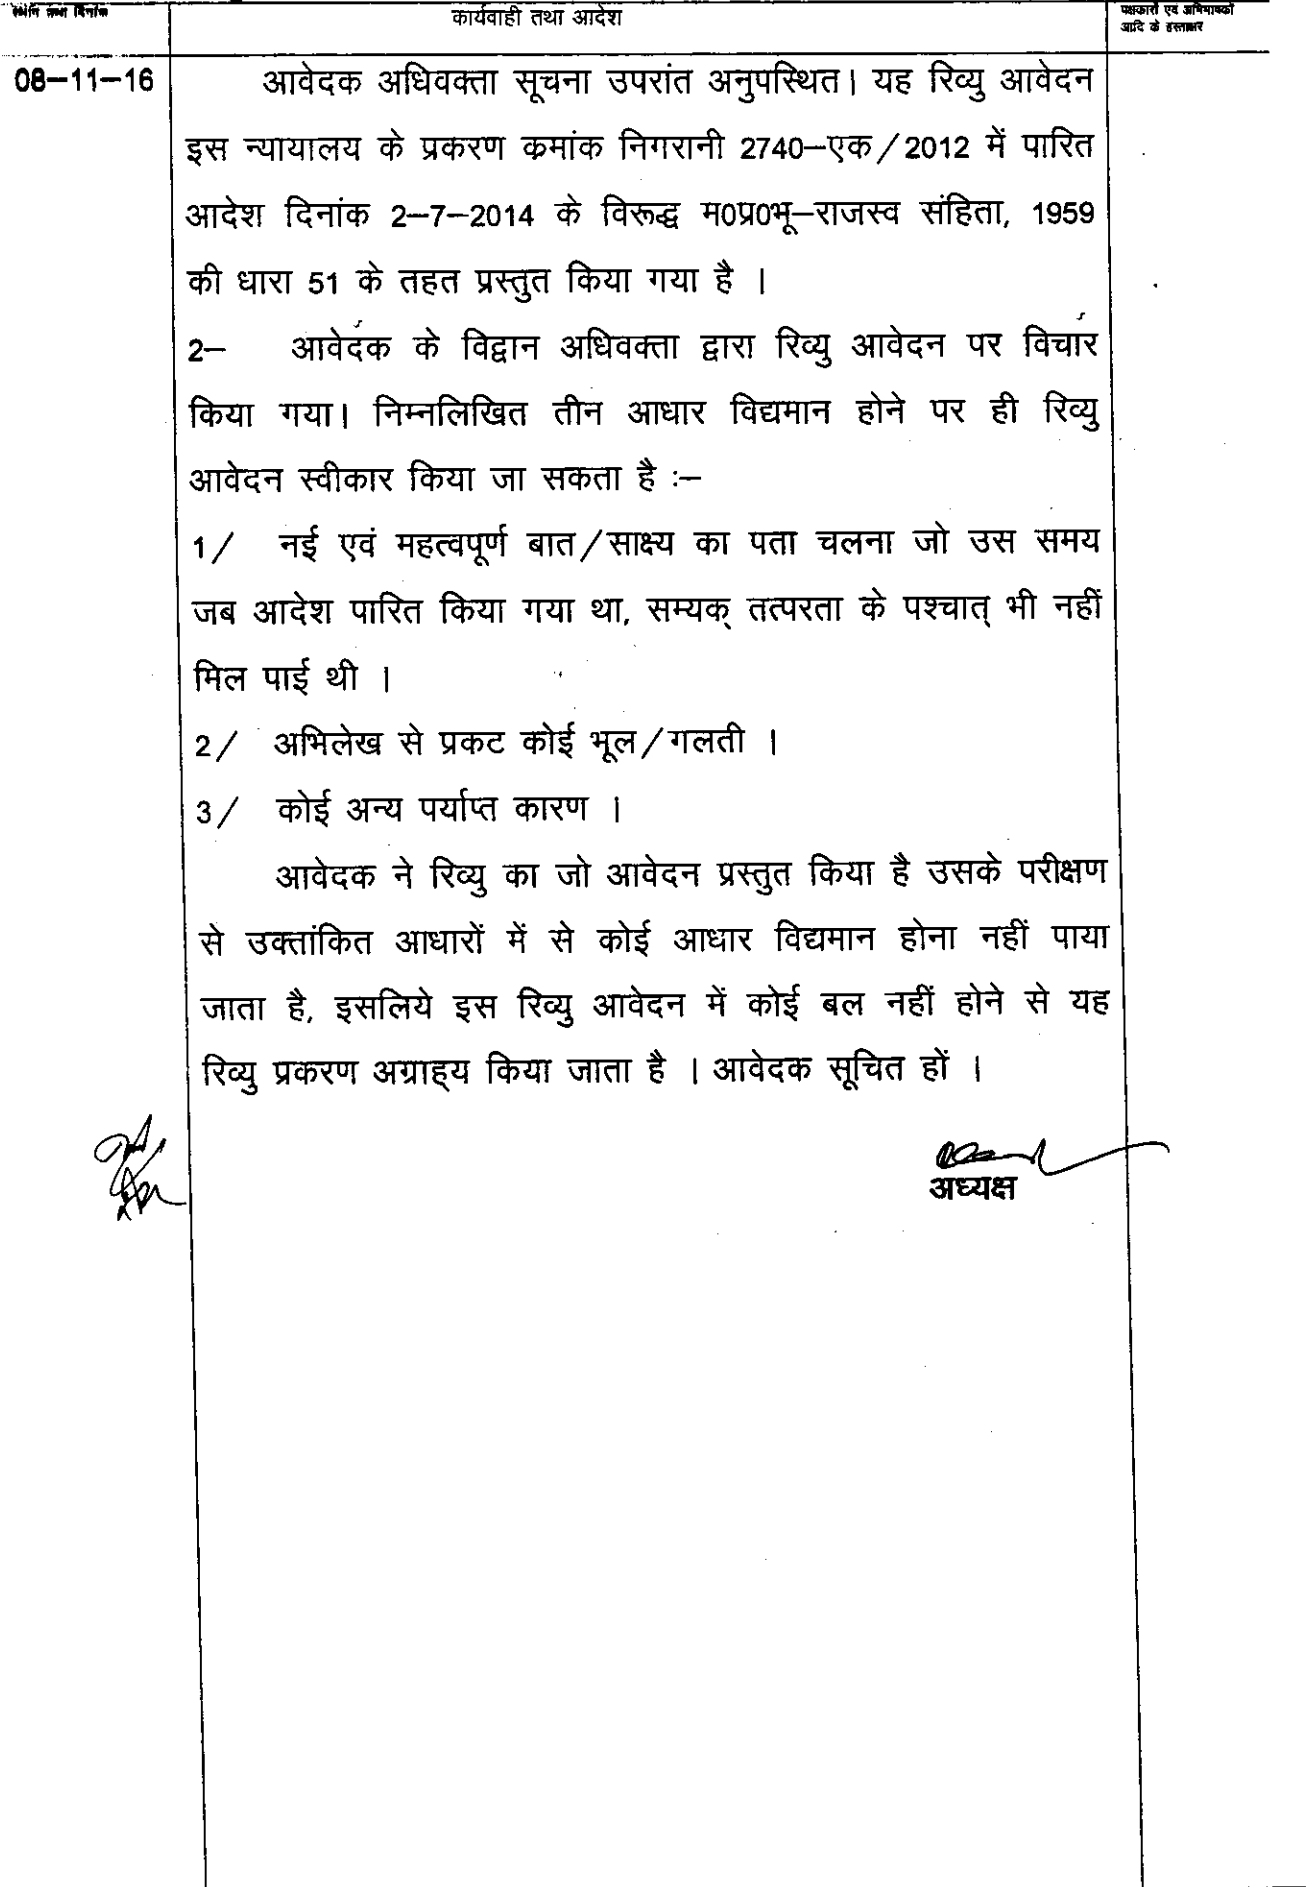 स्थान तथा दिनांक
कार्यवाही तथा आदेश
पक्षकारों एवं अभिभाषकों
आदि के हस्ताक्षर
08–11–16
आवेदक अधिवक्ता सूचना उपरांत अनुपस्थित। यह रिव्यु आवेदन
इस न्यायालय के प्रकरण कमांक निगरानी 2740–एक/2012 में पारित
आदेश दिनांक 2–7–2014 के विरूद्ध म0प्र0भू–राजस्व संहिता, 1959
की धारा 51 के तहत प्रस्तुत किया गया है ।
2– आवेदक के विद्वान अधिवक्ता द्वारा रिव्यु आवेदन पर विचार
किया गया। निम्नलिखित तीन आधार विद्यमान होने पर ही रिव्यु
आवेदन स्वीकार किया जा सकता है :–
1/ नई एवं महत्वपूर्ण बात/साक्ष्य का पता चलना जो उस समय
जब आदेश पारित किया गया था, सम्यक् तत्परता के पश्चात् भी नहीं
मिल पाई थी ।
2/ अभिलेख से प्रकट कोई भूल/गलती ।
3/ कोई अन्य पर्याप्त कारण ।
आवेदक ने रिव्यु का जो आवेदन प्रस्तुत किया है उसके परीक्षण
से उक्तांकित आधारों में से कोई आधार विद्यमान होना नहीं पाया
जाता है, इसलिये इस रिव्यु आवेदन में कोई बल नहीं होने से यह
रिव्यु प्रकरण अग्राह्य किया जाता है । आवेदक सूचित हों ।
अध्यक्ष